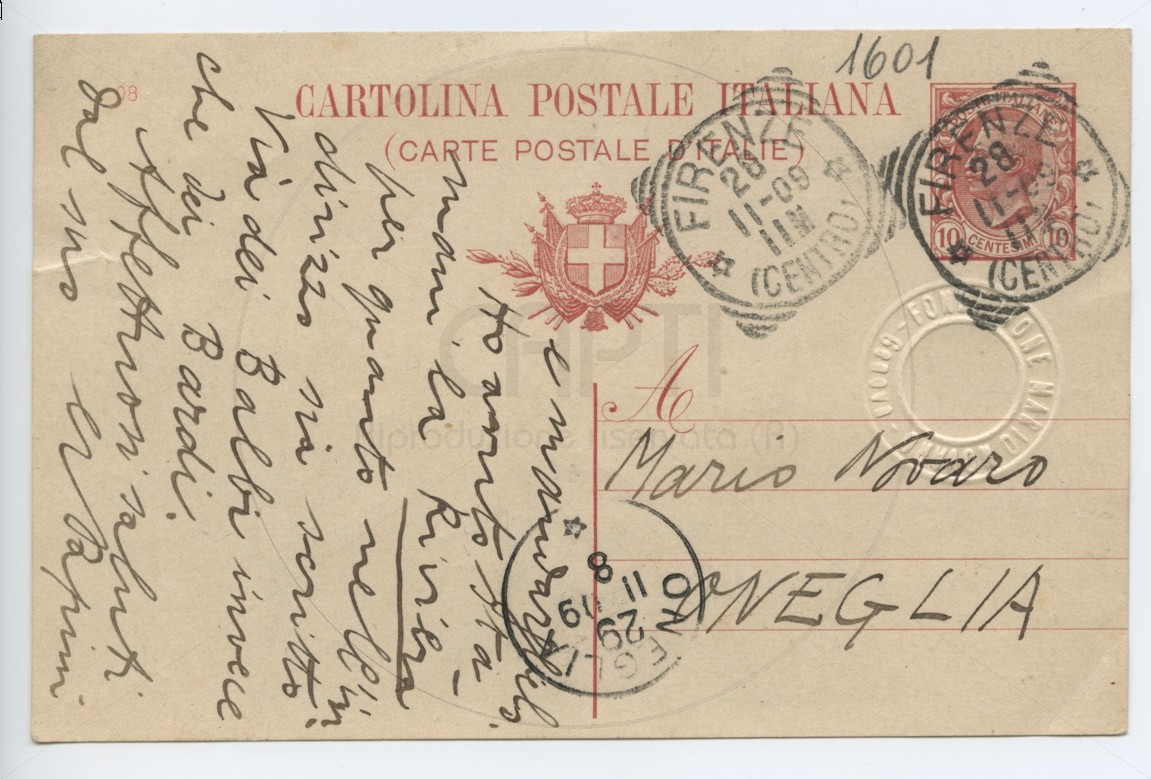 1601
08
CARTOLINA POSTALE ITALIANA
(CARTE POSTALE D'ITALIE)
FIRENZE
28
11-09
11M
(CENTRO)
FIRENZE
28
11-09
11M
(CENTRO)
POSTE ITALIANE
10 CENTESIMI 10
FONDAZIONE MARIO NOVARO - GENOVA
CHPTI
riproduzione riservata (R)
A
Mario Novaro
ONEGLIA
ONEGLIA
29
11 09
8
e mandarglielo.
Ho avuto sta-
mani la Riviera
per quanto nell'in-
dirizzo sia scritto
Via dei Balbi invece
che dei Bardi.
Affettuosi saluti
dal suo
G Papini